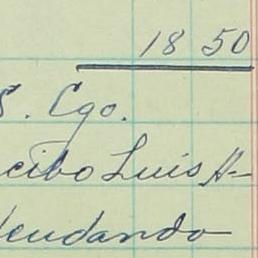 18 50
S. Cgo.
cibo Luis A-
deudando